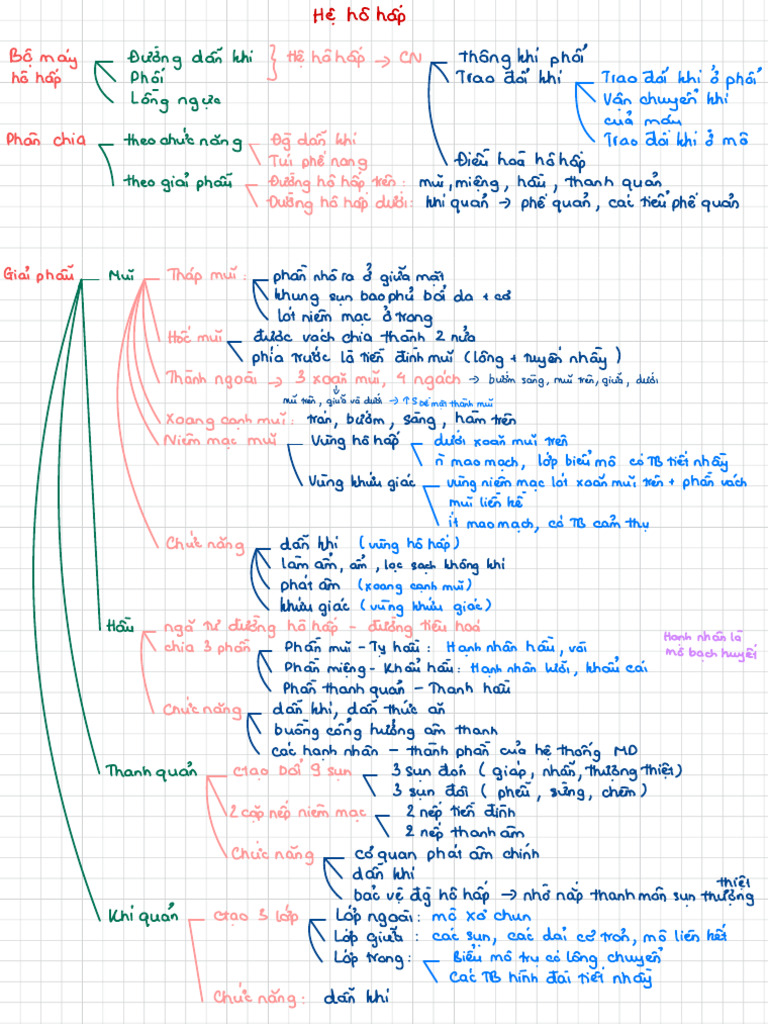 Hệ hô hấp
Bộ máy hô hấp
Đường dẫn khí
Phổi
Lồng ngực
Hệ hô hấp → CN
Thông khí phổi
Trao đổi khí
Trao đổi khí ở phổi
Vận chuyển khí của máu
Trao đổi khí ở mô
Điều hoà hô hấp
Phân chia
theo chức năng
Đg dẫn khí
Túi phế nang
theo giải phẫu
Đường hô hấp trên: mũi, miệng, hầu, thanh quản
Đường hô hấp dưới: khí quản → phế quản, các tiểu phế quản
Giải phẫu
Mũi
Tháp mũi:
phần nhô ra ở giữa mặt
khung sụn bao phủ bởi da + cơ
lót niêm mạc ở trong
Hốc mũi
được vách chia thành 2 nửa
phía trước là tiền đình mũi (lông + tuyến nhầy)
Thành ngoài → 3 xoăn mũi, 4 ngách → bướm sàng, mũi trên, giữa, dưới
mũi trên, giữa và dưới → ↑ S bề mặt thành mũi
Xoang cạnh mũi: trán, bướm, sàng, hàm trên
Niêm mạc mũi
Vùng hô hấp
dưới xoăn mũi trên
n̄ mao mạch, lớp biểu mô có TB tiết nhầy
Vùng khứu giác
vùng niêm mạc lót xoăn mũi trên + phần vách
mũi liền kề
ít mao mạch, có TB cảm thụ
Chức năng
dẫn khí (vùng hô hấp)
làm ấm, ẩm, lọc sạch không khí
phát âm (xoang cạnh mũi)
khứu giác (vùng khứu giác)
Hầu
ngã tư đường hô hấp - đường tiêu hoá
chia 3 phần
Phần mũi - Tỵ hầu: Hạnh nhân hầu, vòi
Phần miệng - Khẩu hầu: Hạnh nhân lưỡi, khẩu cái
Phần thanh quản - Thanh hầu
Hạnh nhân là
mô bạch huyết
Chức năng
dẫn khí, dẫn thức ăn
buồng cộng hưởng âm thanh
các hạnh nhân - thành phần của hệ thống MD
Thanh quản
Ctạo bởi 9 sụn
3 sụn đơn (giáp, nhẫn, thượng thiệt)
3 sụn đôi (phễu, sừng, chêm)
2 cặp nếp niêm mạc
2 nếp tiền đình
2 nếp thanh âm
Chức năng
cơ quan phát âm chính
dẫn khí
bảo vệ đg hô hấp → nhờ nắp thanh môn sụn thượng thiệt
Khí quản
Ctạo 3 lớp
Lớp ngoài: mô xơ chun
Lớp giữa: các sụn, các dải cơ trơn, mô liên kết
Lớp trong:
Biểu mô trụ có lông chuyển
Các TB hình đài tiết nhầy
Chức năng: dẫn khí